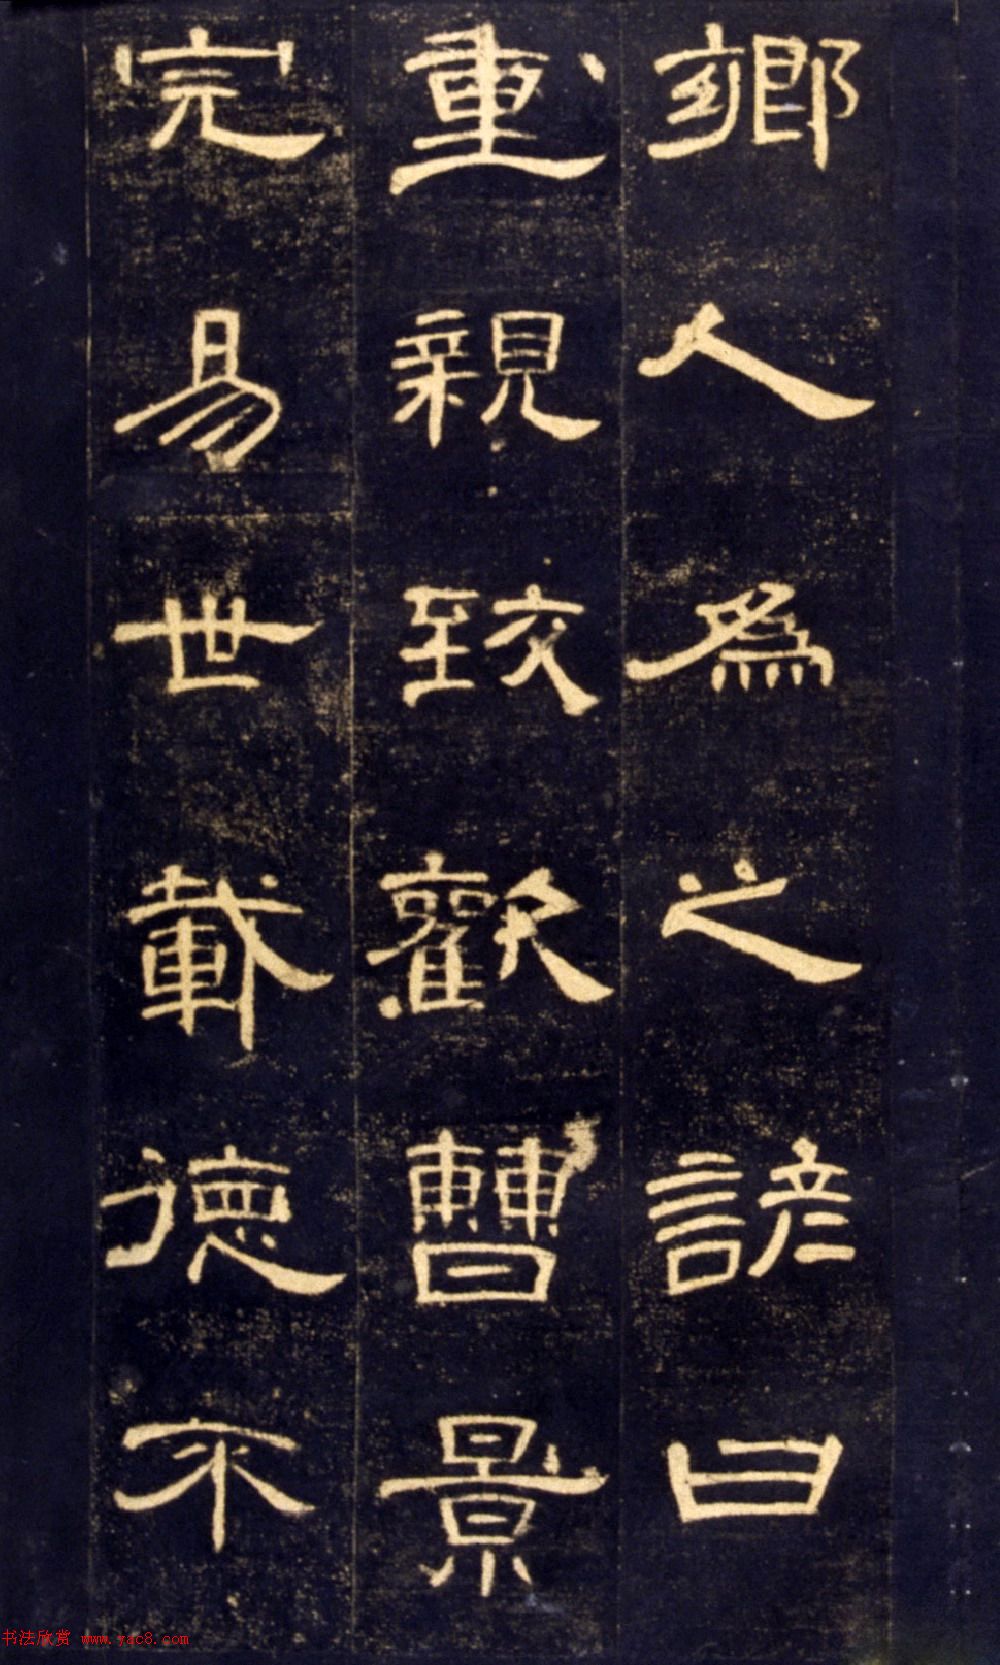 鄉人為之諺曰
重親致歡曹景
完易世載德不
书法欣赏 www.yac8.com